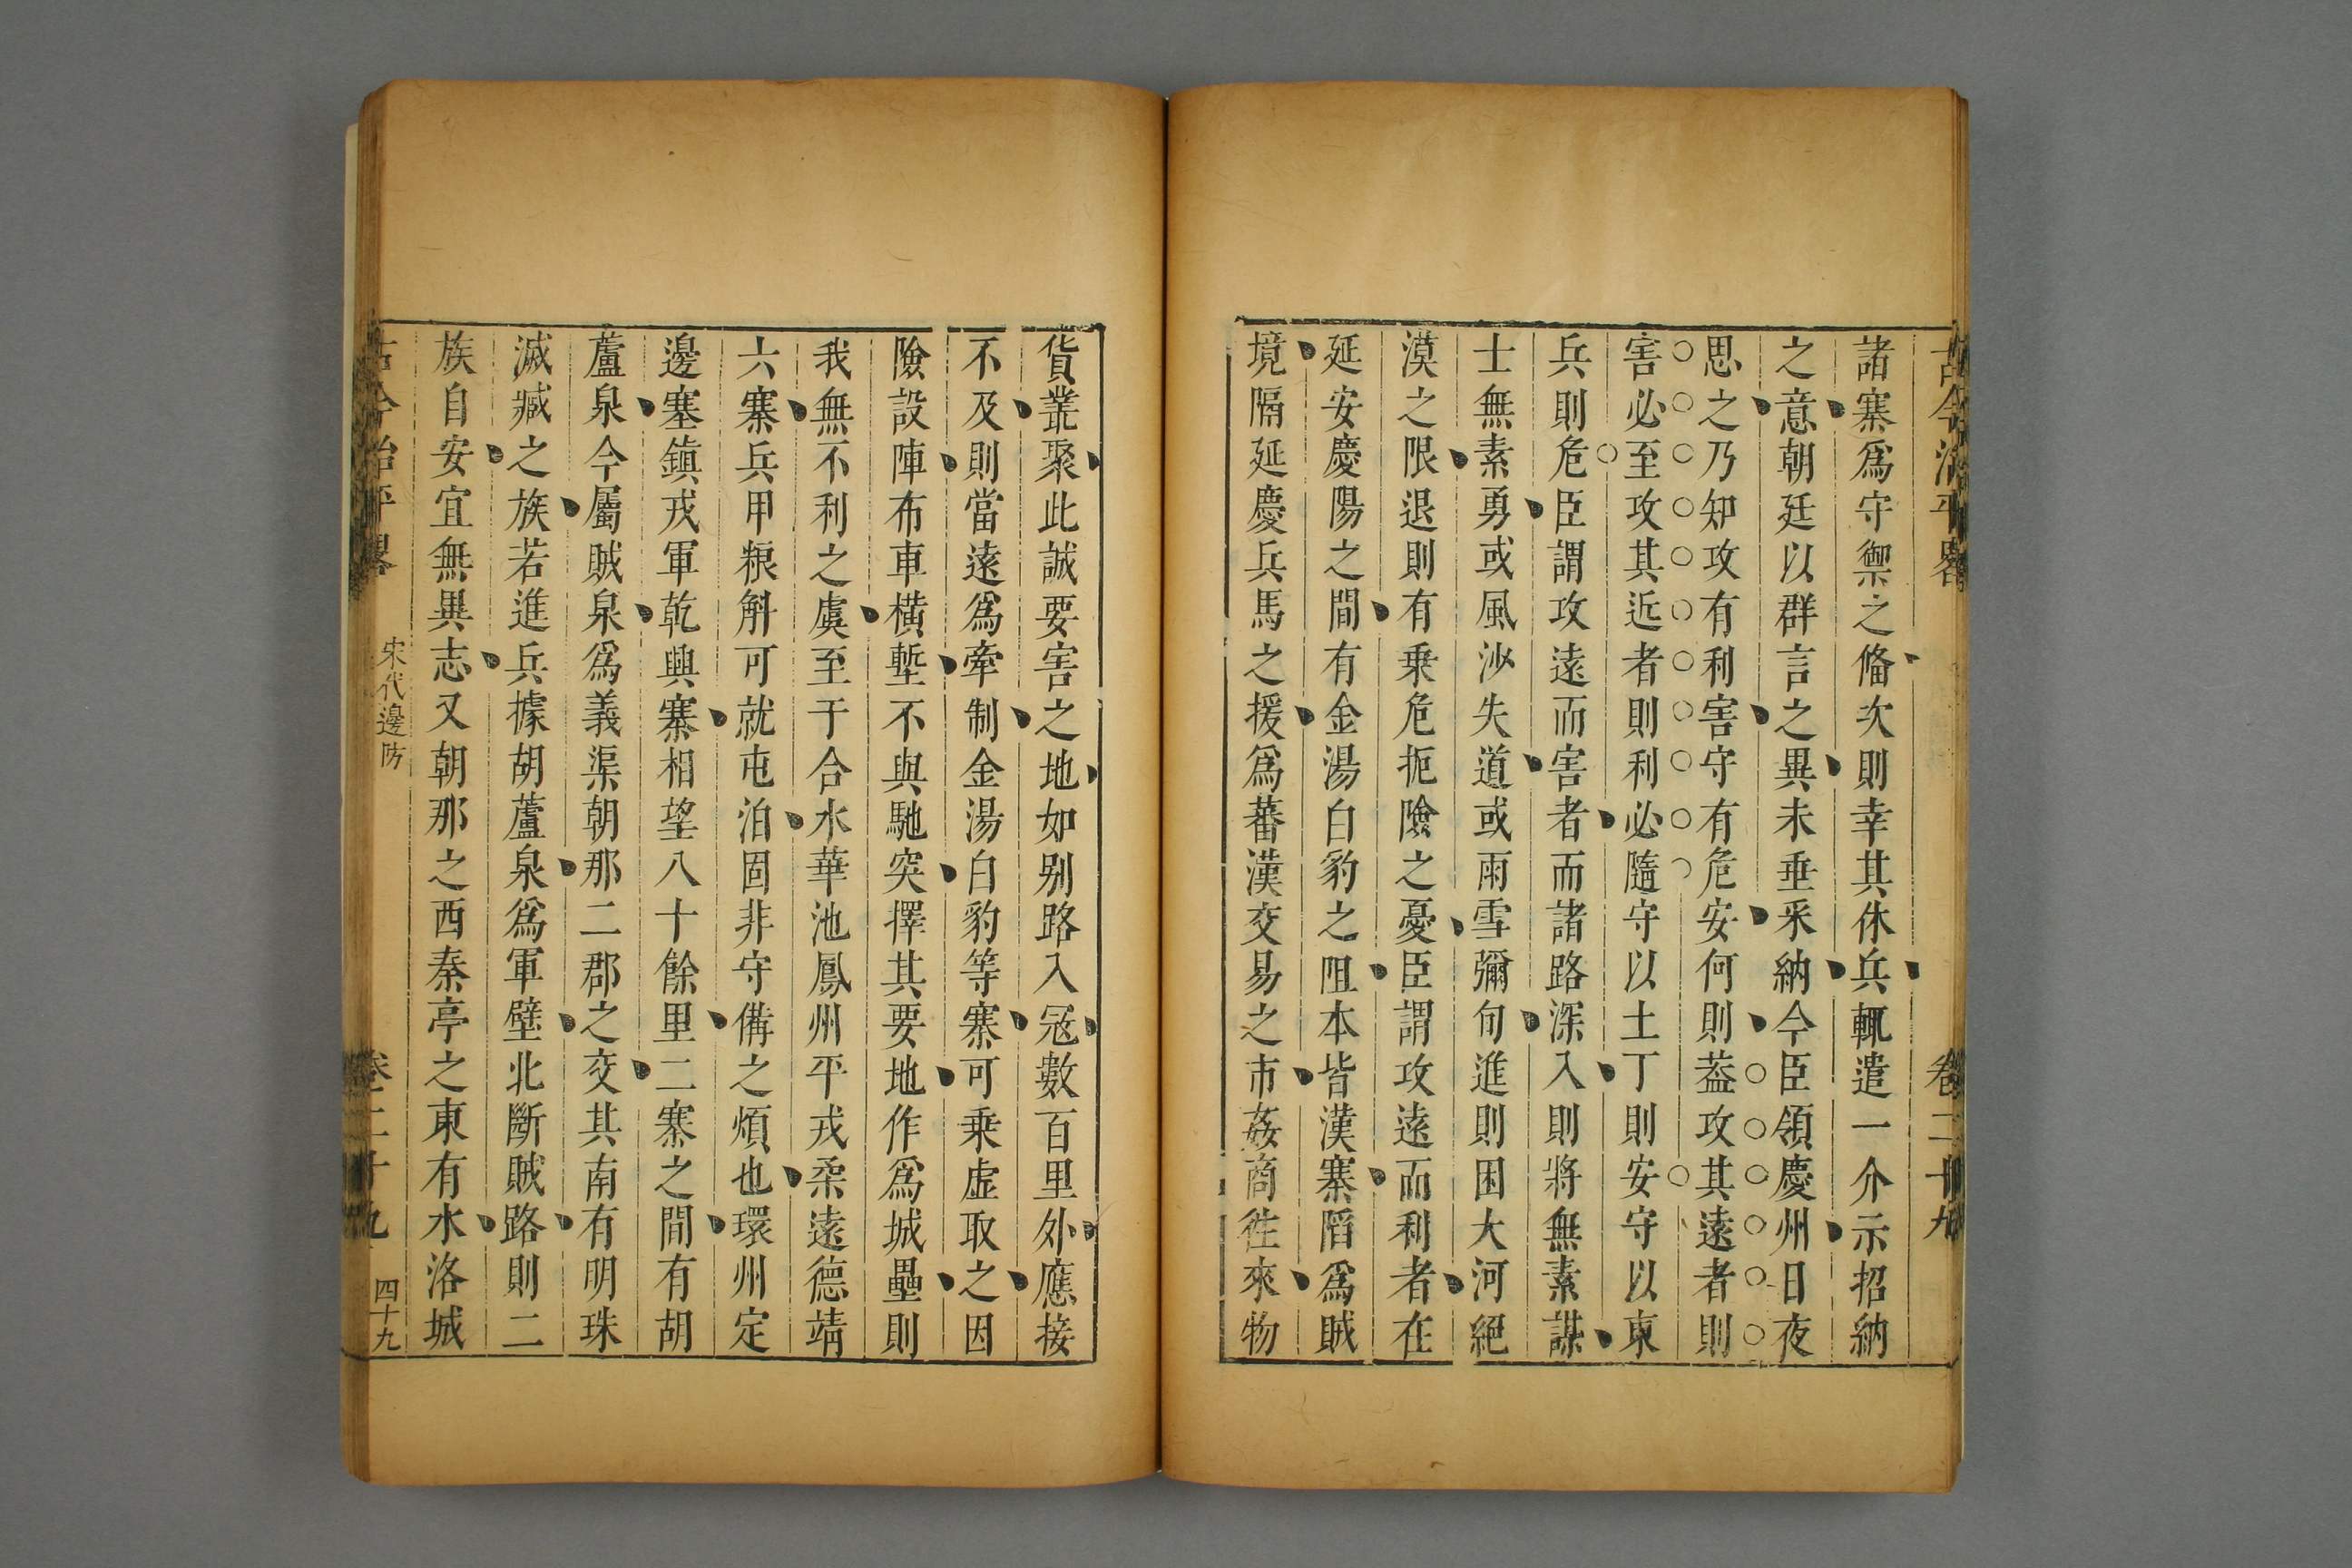 古今治平畧　卷二十九
諸寨爲守禦之俻次則幸其休兵輒遣一介示招納
之意朝廷以群言之異未垂采納今臣領慶州日夜
思之乃知攻有利害守有危安何則葢攻其遠者則
害必至攻其近者則利必隨守以土丁則安守以東
兵則危臣謂攻遠而害者而諸路深入則將無素謀
士無素勇或風沙失道或雨雪彌旬進則困大河絕
漠之限退則有乗危扼險之憂臣謂攻遠而利者在
延安慶陽之間有金湯白豹之阻本皆漢寨䧟爲賊
境隔延慶兵馬之援爲蕃漢交易之市姦商徃來物
貨叢聚此誠要害之地如别路入冦數百里外應接
不及則當遠爲牽制金湯白豹等寨可乗虛取之因
險設陣布車橫塹不與馳突擇其要地作爲城壘則
我無不利之虞至于合水華池鳳州平戎柔遠德靖
六寨兵甲粮斛可就屯泊固非守備之煩也環州定
邊塞鎮戎軍乾興寨相望八十餘里二寨之間有胡
蘆泉今屬賊泉爲義渠朝那二郡之交其南有明珠
滅臧之族若進兵據胡蘆泉爲軍壁北斷賊路則二
族自安宜無異志又朝那之西秦亭之東有水洛城
古今治平畧　宋代邊防　卷二十九　四十九